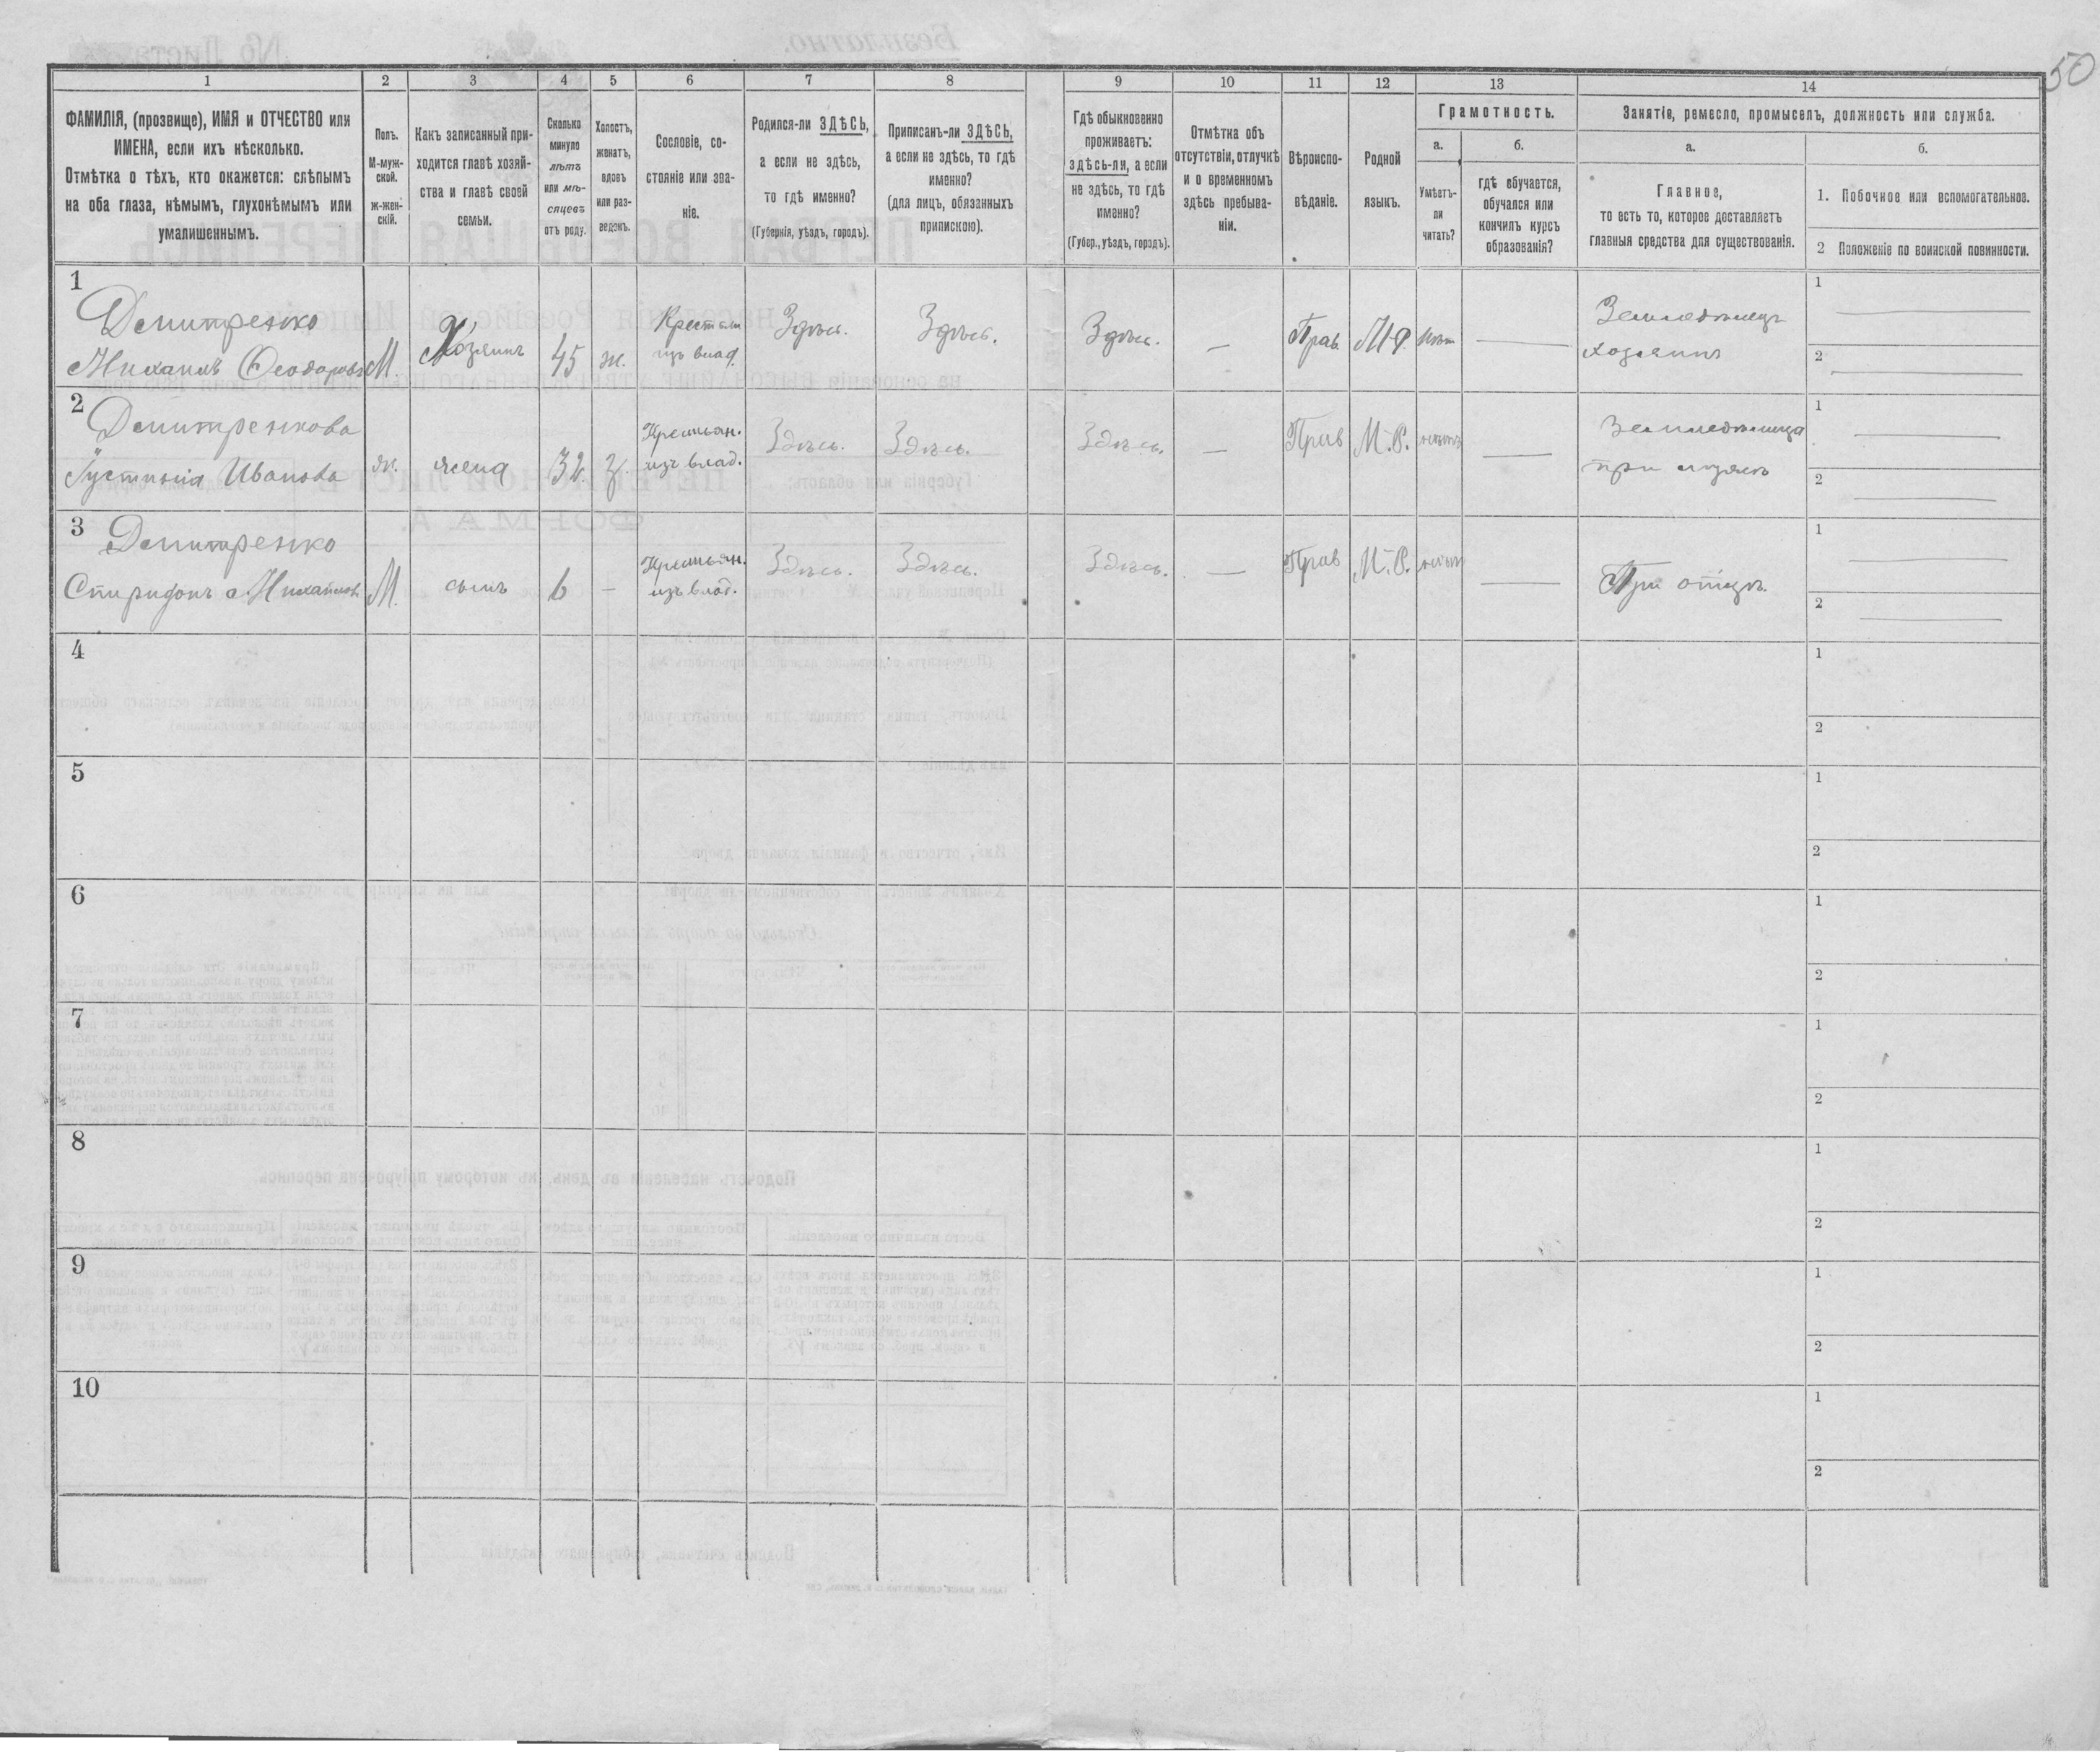 50
1 2 3 4 5 6 7 8 9 10 11 12 13 14
ФАМИЛІЯ, (прозвище), ИМЯ и ОТЧЕСТВО или
ИМЕНА, если ихъ нѣсколько.
Отмѣтка о тѣхъ, кто окажется: слѣпымъ
на оба глаза, нѣмымъ, глухонѣмымъ или
умалишеннымъ.
Полъ.
М-муж-
ской.
ж-жен-
скій.
Какъ записанный при-
ходится главѣ хозяй-
ства и главѣ своей
семьи.
Сколько
минуло
лѣтъ
или мѣ-
сяцевъ
отъ роду.
Холостъ,
женатъ,
вдовъ
или раз-
веденъ.
Сословіе, со-
стояніе или зва-
ніе.
Родился-ли ЗДѢСЬ,
а если не здѣсь,
то гдѣ именно?
(Губернія, уѣздъ, городъ).
Приписанъ-ли ЗДѢСЬ,
а если не здѣсь, то гдѣ
именно?
(для лицъ, обязанныхъ
припискою).
Гдѣ обыкновенно
проживаетъ:
здѣсь-ли, а если
не здѣсь, то гдѣ
именно?
(Губер., уѣздъ, городъ).
Отмѣтка объ
отсутствіи, отлучкѣ
и о временномъ
здѣсь пребыва-
ніи.
Вѣроиспо-
вѣданіе.
Родной
языкъ.
Грамотность.
а.
Умѣетъ-
ли
читать?
б.
гдѣ обучается,
обучался или
кончилъ курсъ
образованія?
Занятіе, ремесло, промыселъ, должность или служба.
а.
Главное,
то есть то, которое доставляетъ
главныя средства для существованія.
б.
1. Побочное или вспомогательное.
2 Положеніе по воинской повинности.
1
Демитренко
Михаилъ Ѳеодоровъ
М.
Хозяинъ
45
ж.
Крестьян
изъ влад.
Здѣсь.
Здѣсь.
Здѣсь.
—
Прав.
М.Р.
нѣт
—
Земледѣлецъ
хозяинъ
1 —
2 —
2
Демитренкова
Іустинія Иванова
ж.
жена
32
з.
Крестьян.
изъ влад.
Здѣсь.
Здѣсь.
Здѣсь.
—
Прав
М.Р.
нѣтъ
—
Земледѣлица
при мужѣ
1 —
2 —
3
Демитренко
Спиридонъ Михайлов.
М.
сынъ
6
—
Крестьян.
изъ влад.
Здѣсь.
Здѣсь.
Здѣсь.
—
Прав
М.Р.
нѣтъ
—
При отцѣ.
1 —
2 —
4
1
2
5
1
2
6
1
2
7
1
2
8
1
2
9
1
2
10
1
2